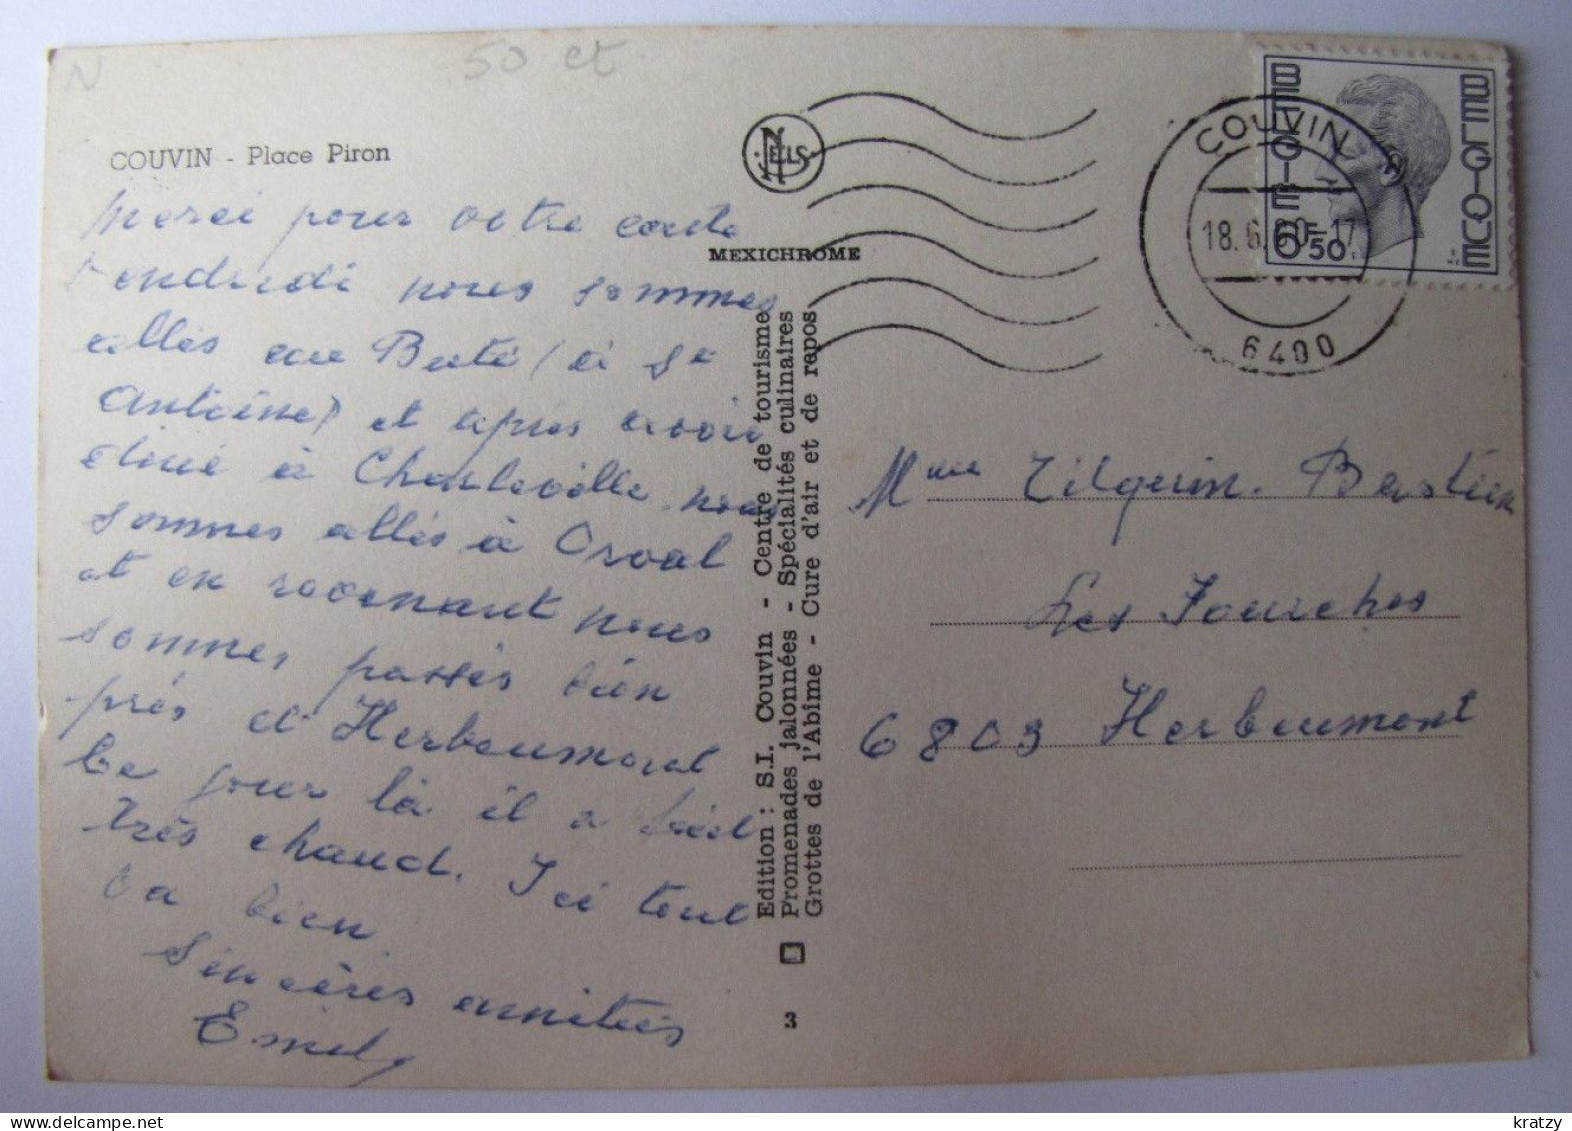 N
50 ct
COUVIN - Place Piron
Merci pour votre carte
Vendredi nous sommes
allés au Buté (à St
Antoine) et après avoir
diné à Charleville nous
sommes allés à Orval
et en revenant nous
sommes passés bien
près d'Herbeumont
Ce jour là il a fait
très chaud. Ici tout
va bien.
Sincères amitiés
Emily
NELS
MEXICHROME
Edition : S.I. Couvin - Centre de tourisme
Promenades jalonnées - Spécialités culinaires
Grottes de l'Abîme - Cure d'air et de repos
3
BELGIE BELGIQUE
6F50
COUVIN
18.6.80-17
6400
Mme Tilquin. Bastien
Les Fouches
6803 Herbeumont
kratzy